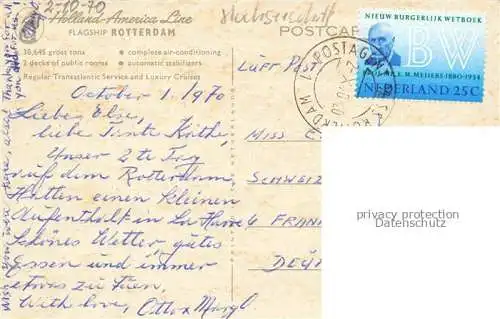 2-10-70
Holland-America Line
FLAGSHIP ROTTERDAM
POSTCARD
38,645 gross tons • complete air-conditioning
2 decks of public rooms • automatic stabilizers
Regular Transatlantic Service and Luxury Cruises
NIEUW BURGERLIJK WETBOEK
BW
PROF. MR. E.M. MEIJERS 1880-1954
NEDERLAND 25C
POSTAGENT
ROTTERDAM
Luft Post
October 1, 1970
Liebe Else,
liebe Tante Käthe,
Unser 2te Tag
auf dem Rotterdam,
Hatten einen kleinen
Aufenthalt in La Havre
Schönes Wetter, gutes
Essen und immer
etwas zu tuen,
With love, Otto u Margl
Miss
SCHWEIZ
6 FRANK
DEU
Wish you were here, also! Thank you for
privacy protection
Datenschutz